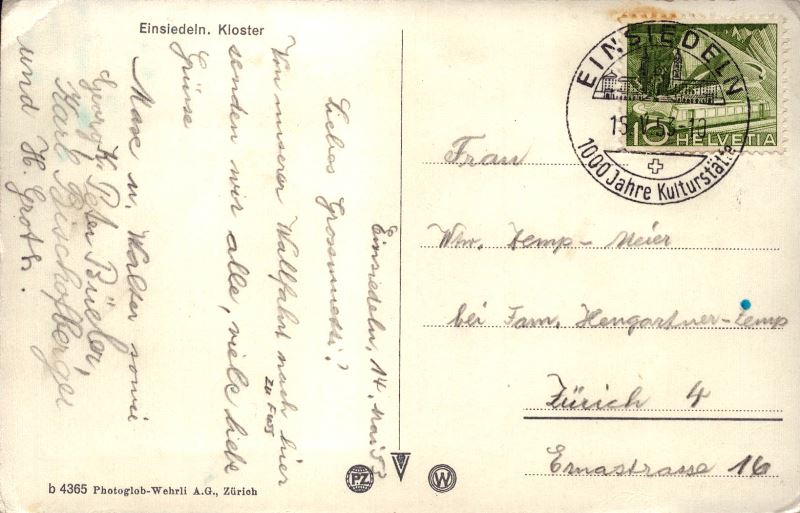 Einsiedeln. Kloster
Einsiedeln, 14. Mai 53
Liebes Grossmuetti!
Von unserer Wallfahrt nach hier
zu Fuss
senden wir alle, viele liebe
Grüsse
Max u. Walter sowie
Georg K. Peter Büeler,
Karl Bischofberger
und H. Groth.
b 4365 Photoglob-Wehrli A.G., Zürich
PZ
W
EINSIEDELN
15. V. 53-10
1000 Jahre Kulturstätte
10 HELVETIA
Frau
Wtw. Kemp-Meier
bei Fam. Hengartner-Kemp
Zürich 4
Ernastrasse 16